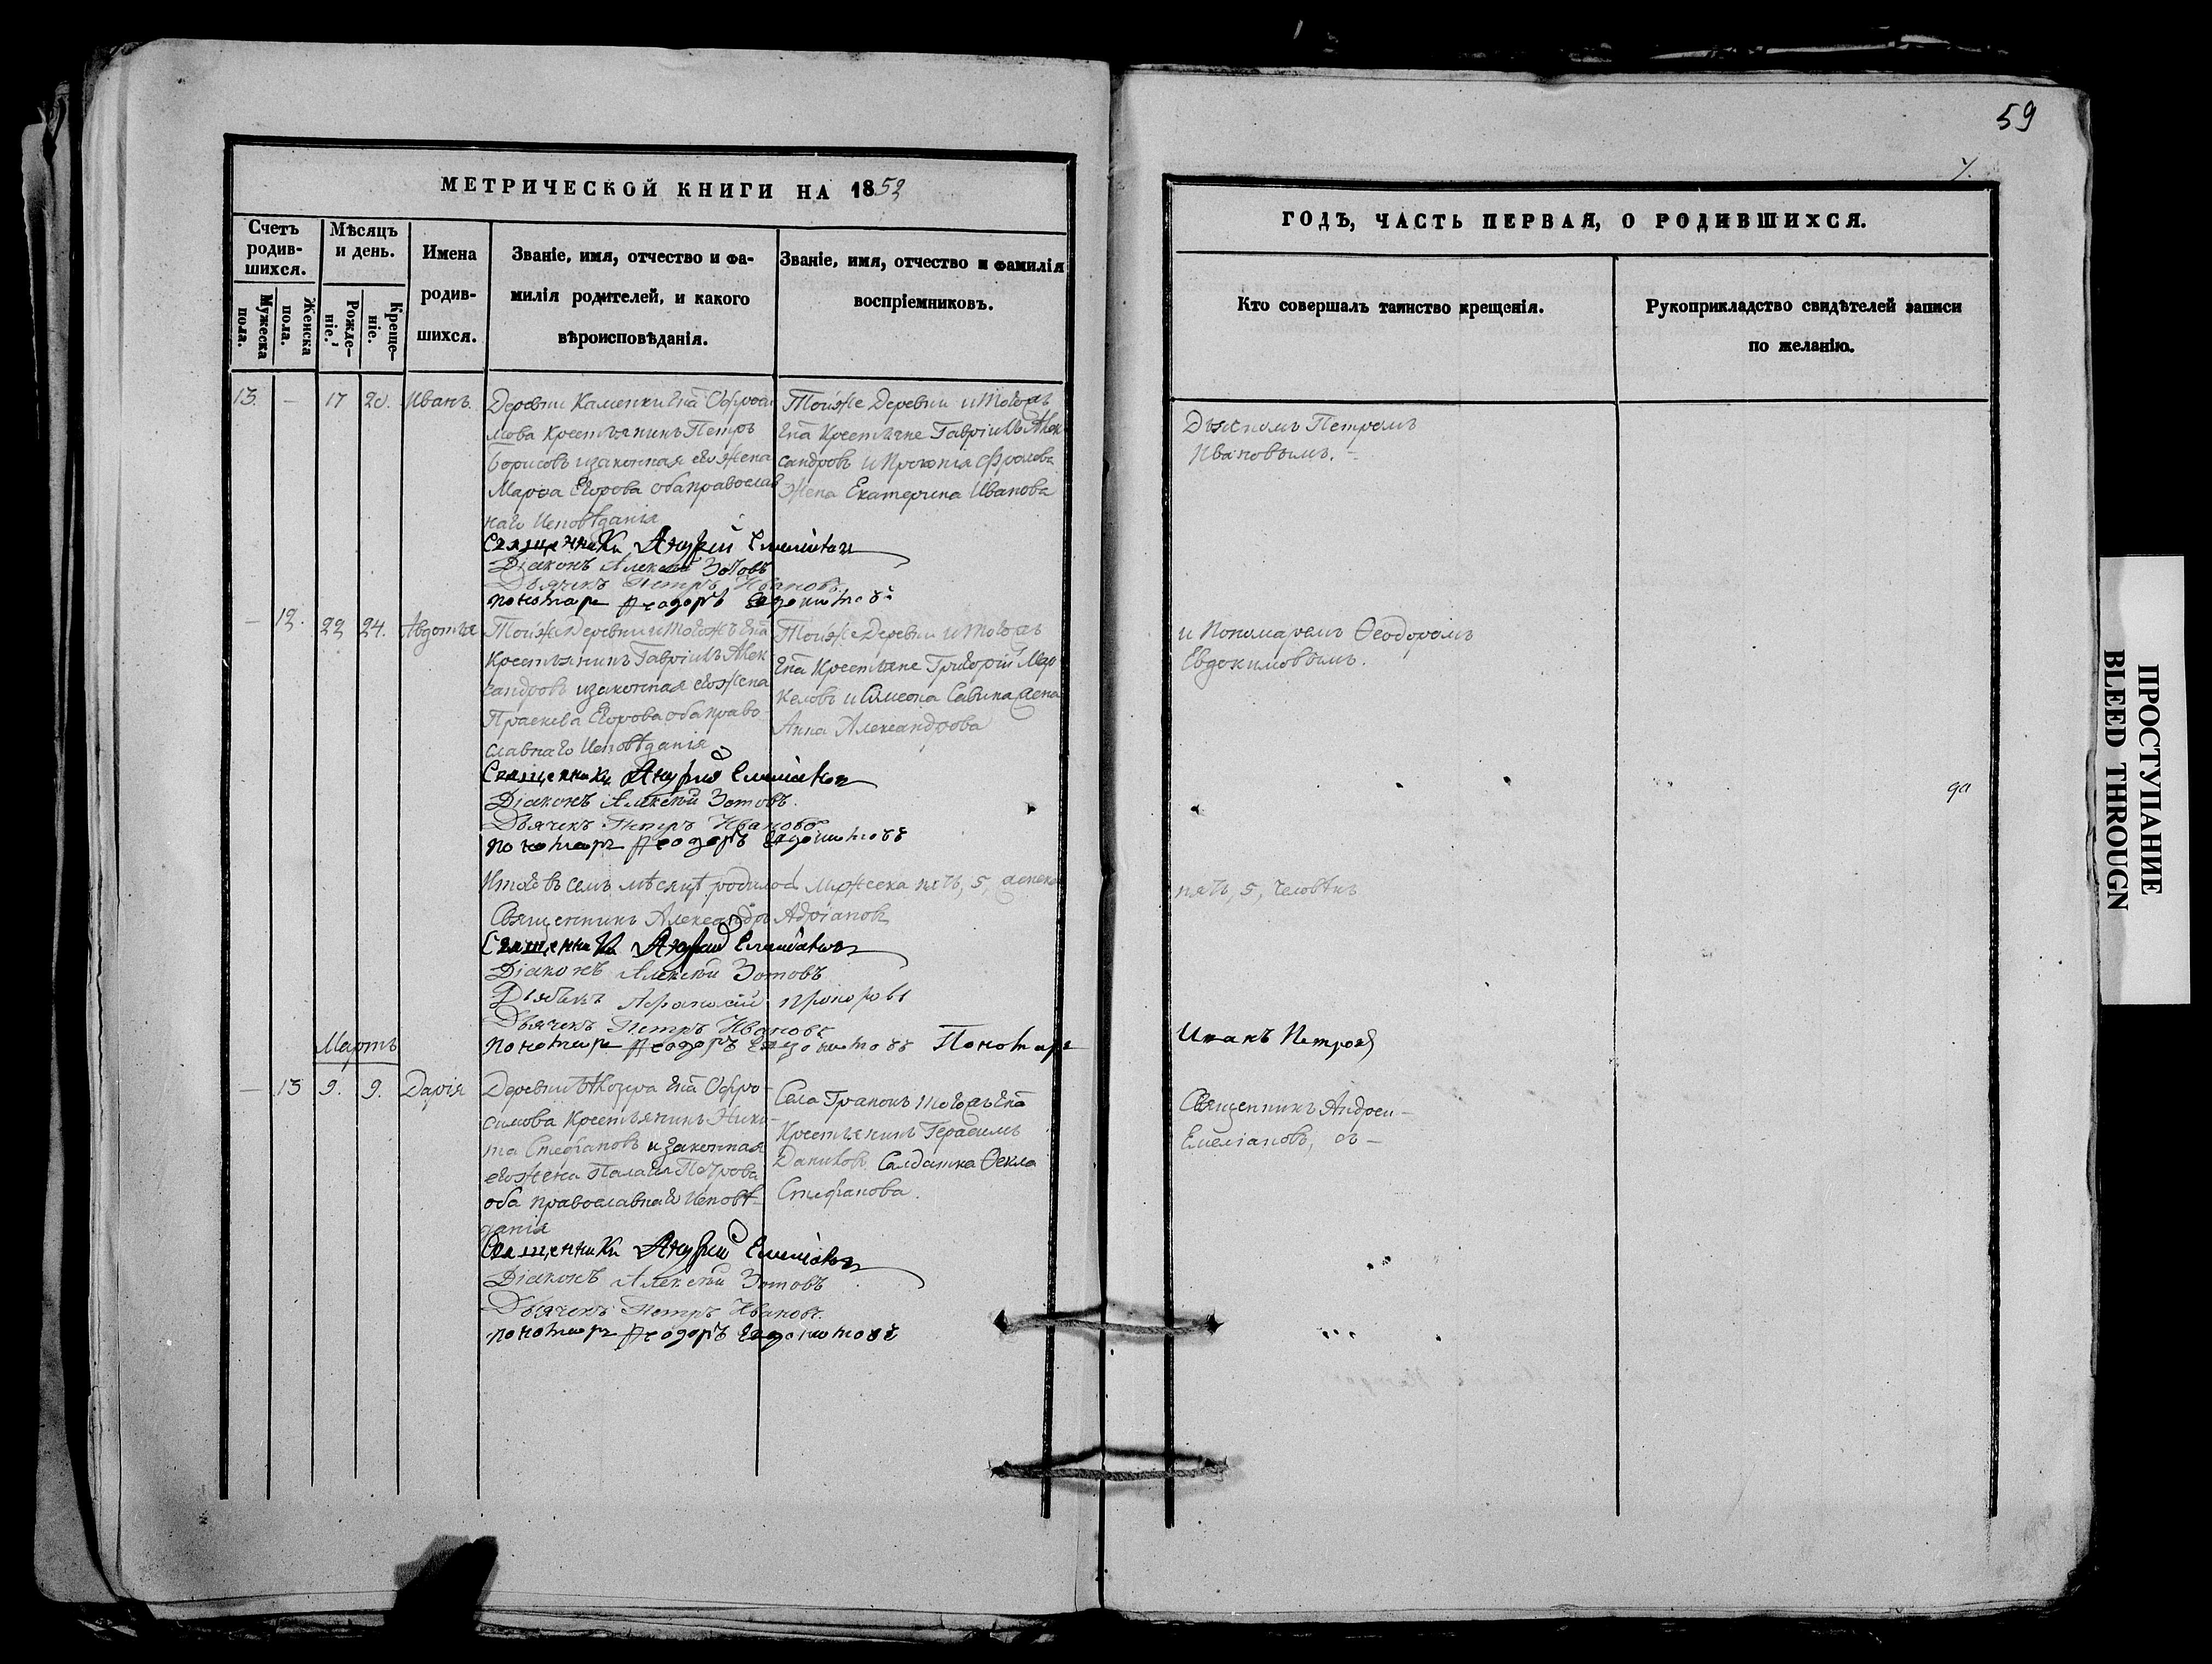 59
7.
МЕТРИЧЕСКОЙ КНИГИ НА 1852
Счетъ родив-шихся.
Мужеска пола.
Женска пола.
Мѣсяцъ и день.
Рожде-ніе.
Креще-ніе.
Имена
родив-
шихся.
Званіе, имя, отчество и фа-
милія родителей, и какого
вѣроисповѣданія.
Званіе, имя, отчество и фамилія
воспріемниковъ.
ГОДЪ, ЧАСТЬ ПЕРВАЯ, О РОДИВШИХСЯ.
Кто совершалъ таинство крещенія.
Рукоприкладство свидѣтелей записи
по желанію.
13. — 17 20. Иванъ.
Деревни Каменки Гна Офроси
мова Крестьянинъ Петръ
Борисовъ и законная его жена
Марѳа Егорова оба православ
наго Исповѣданія
Священникъ Андрей Емелiановъ
Діаконъ Алексѣй Зотовъ
Дьячекъ Петръ Ивановъ.
пономарь Ѳеодоръ Евдокимовъ
Тойже Деревни и тогожъ
Гна Крестьяне Гавріилъ Алек
сандровъ и Прокопія Фролова
Жена Екатерина Иванова
Дьячкомъ Петромъ
Ивановымъ.
— 12. 22 24. Авдотья
Тойже Деревни и тогожъ Гна
Крестьянинъ Гавріилъ Алек
сандровъ и законная его жена
Праскева Егорова оба право-
славнаго Исповѣданія
Священникъ Андрей Емелiановъ
Діаконъ Алексѣй Зотовъ.
Дьячекъ Петръ Ивановъ
пономарь Ѳеодоръ Евдокимовъ
Тойже Деревни и тогожъ
Гна Крестьяне Григорій Мар
келовъ и Симеона Савина жена
Анна Александрова
и Пономаремъ Ѳеодоромъ
Евдокимовымъ.
Итого въ семъ мѣсяцѣ родилось Мужеска пять, 5, женска
пять, 5, человѣкъ
Священникъ Александръ Адріановъ
Священникъ Андрей Емелiановъ
Діаконъ Алексѣй Зотовъ
Дьячекъ Афанасій
Дьячекъ Петръ Ивановъ
пономарь Ѳеодоръ Евдокимовъ Пономарь
Иванъ Петровъ
Мартъ
— 13 9. 9. Дарія
Деревни Гна Офро-
симова Крестьянинъ Ники-
та Стефановъ и законная
его жена Палагія Петрова
оба православнаго Исповѣ-
данія
Священникъ Андрей Емелiановъ
Діаконъ Алексѣй Зотовъ
Дьячекъ Петръ Ивановъ.
пономарь Ѳеодоръ Евдокимовъ
Села Гранокъ тогожъ Гна
Крестьянинъ Герасимъ
Даниловъ, Салдатка Ѳекла
Стефанова.
Священникъ Андрей —
Емеліановъ, съ —
ПРОСТУПАНИЕ
BLEED THROUGN